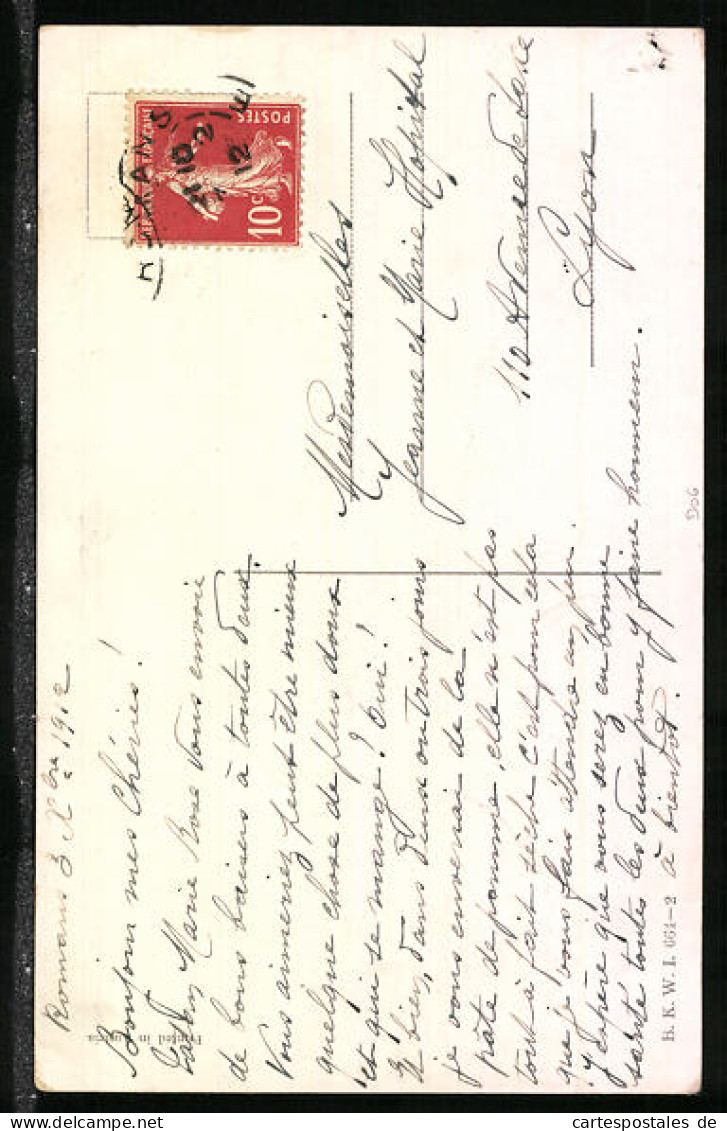 Romans 3 Xbre 1912
Bonjour mes Chéries!
Marie Rose vous envoie
de bons baisers à toutes deux.
Vous aimeriez peut être mieux
quelque chose de plus doux
et qui se mange? Oui!
E bien, dans deux ou trois jours
je vous enverrai de la
pâte de pomme, elle n'est pas
tout à fait sèche c'est pour cela
que je vous fais attendre un peu.
J'espère que vous serez en bonne
santé toutes les deux pour y faire honneur.
à bientôt.
Mesdemoiselles
Jeanne et Marie Hopital
110 Avenue de Saxe
Lyon
POSTES
10c
ROMANS
12
D06
Printed in Austria
B. K. W. I. 664-2
cartespostales.de